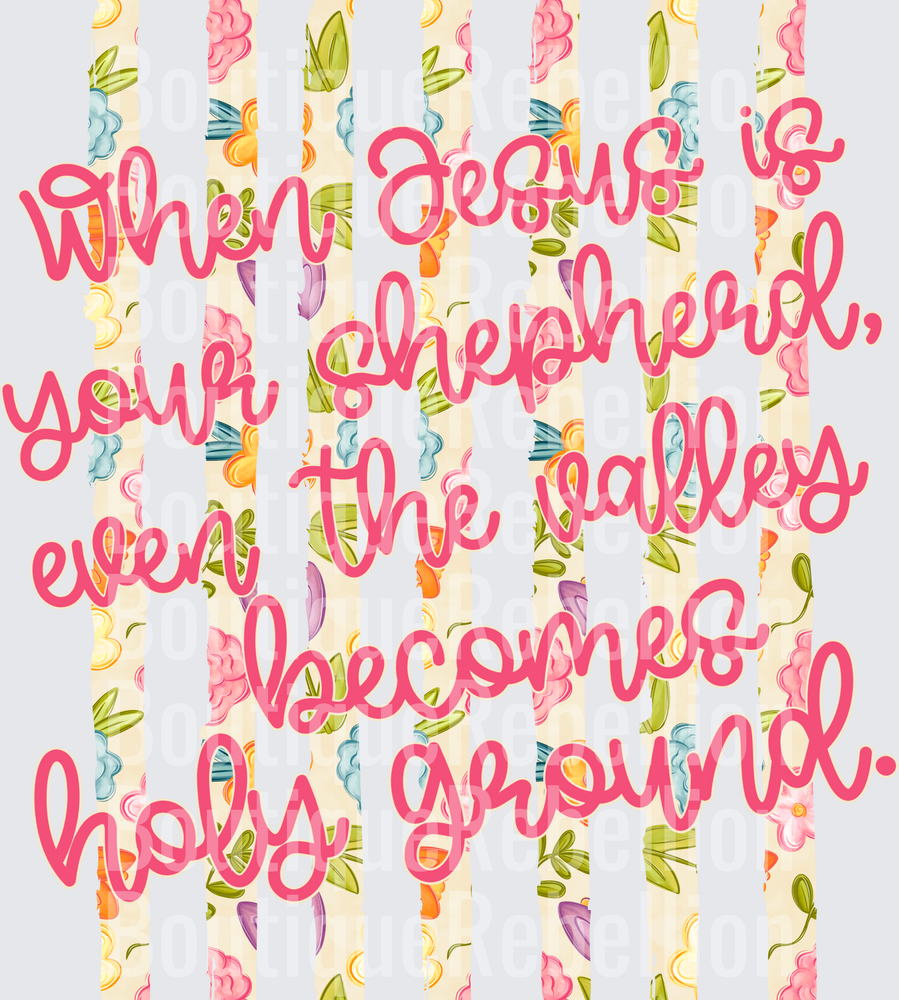 When Jesus is
your shepherd,
even the valley
becomes
holy ground.
BoutiqueRebellion
BoutiqueRebellion
BoutiqueRebellion
BoutiqueRebellion
BoutiqueRebellion
BoutiqueRebellion
BoutiqueRebellion
BoutiqueRebellion
BoutiqueRebellion